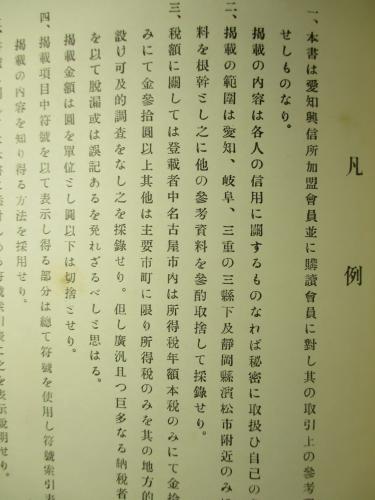 凡例
一、本書は愛知興信所加盟會員並に購讀會員に對し其の取引上の參考
せしものなり。
掲載の内容は各人の信用に關するものなれば秘密に取扱ひ自己の
二、掲載の範圍は愛知、岐阜、三重の三縣下及靜岡縣濱松市附近のみ
料を根幹とし之に他の參考資料を參酌取捨して採錄せり。
三、税額に關しては登載者中名古屋市内は所得税年額本税のみにて金拾
みにて金參拾圓以上其他は主要市町に限り所得税のみを其の地方的
設け可及的調査をなし之を採錄せり。但し廣汎且つ巨多なる納税者
を以て脱漏或は誤記あるを免れざるべしと思はる。
掲載金額は圓を單位とし圓以下は切捨とせり。
四、掲載項目中符號を以て表示し得る部分は總て符號を使用し符號索引表
掲載の内容を知り得る方法を採用せり。